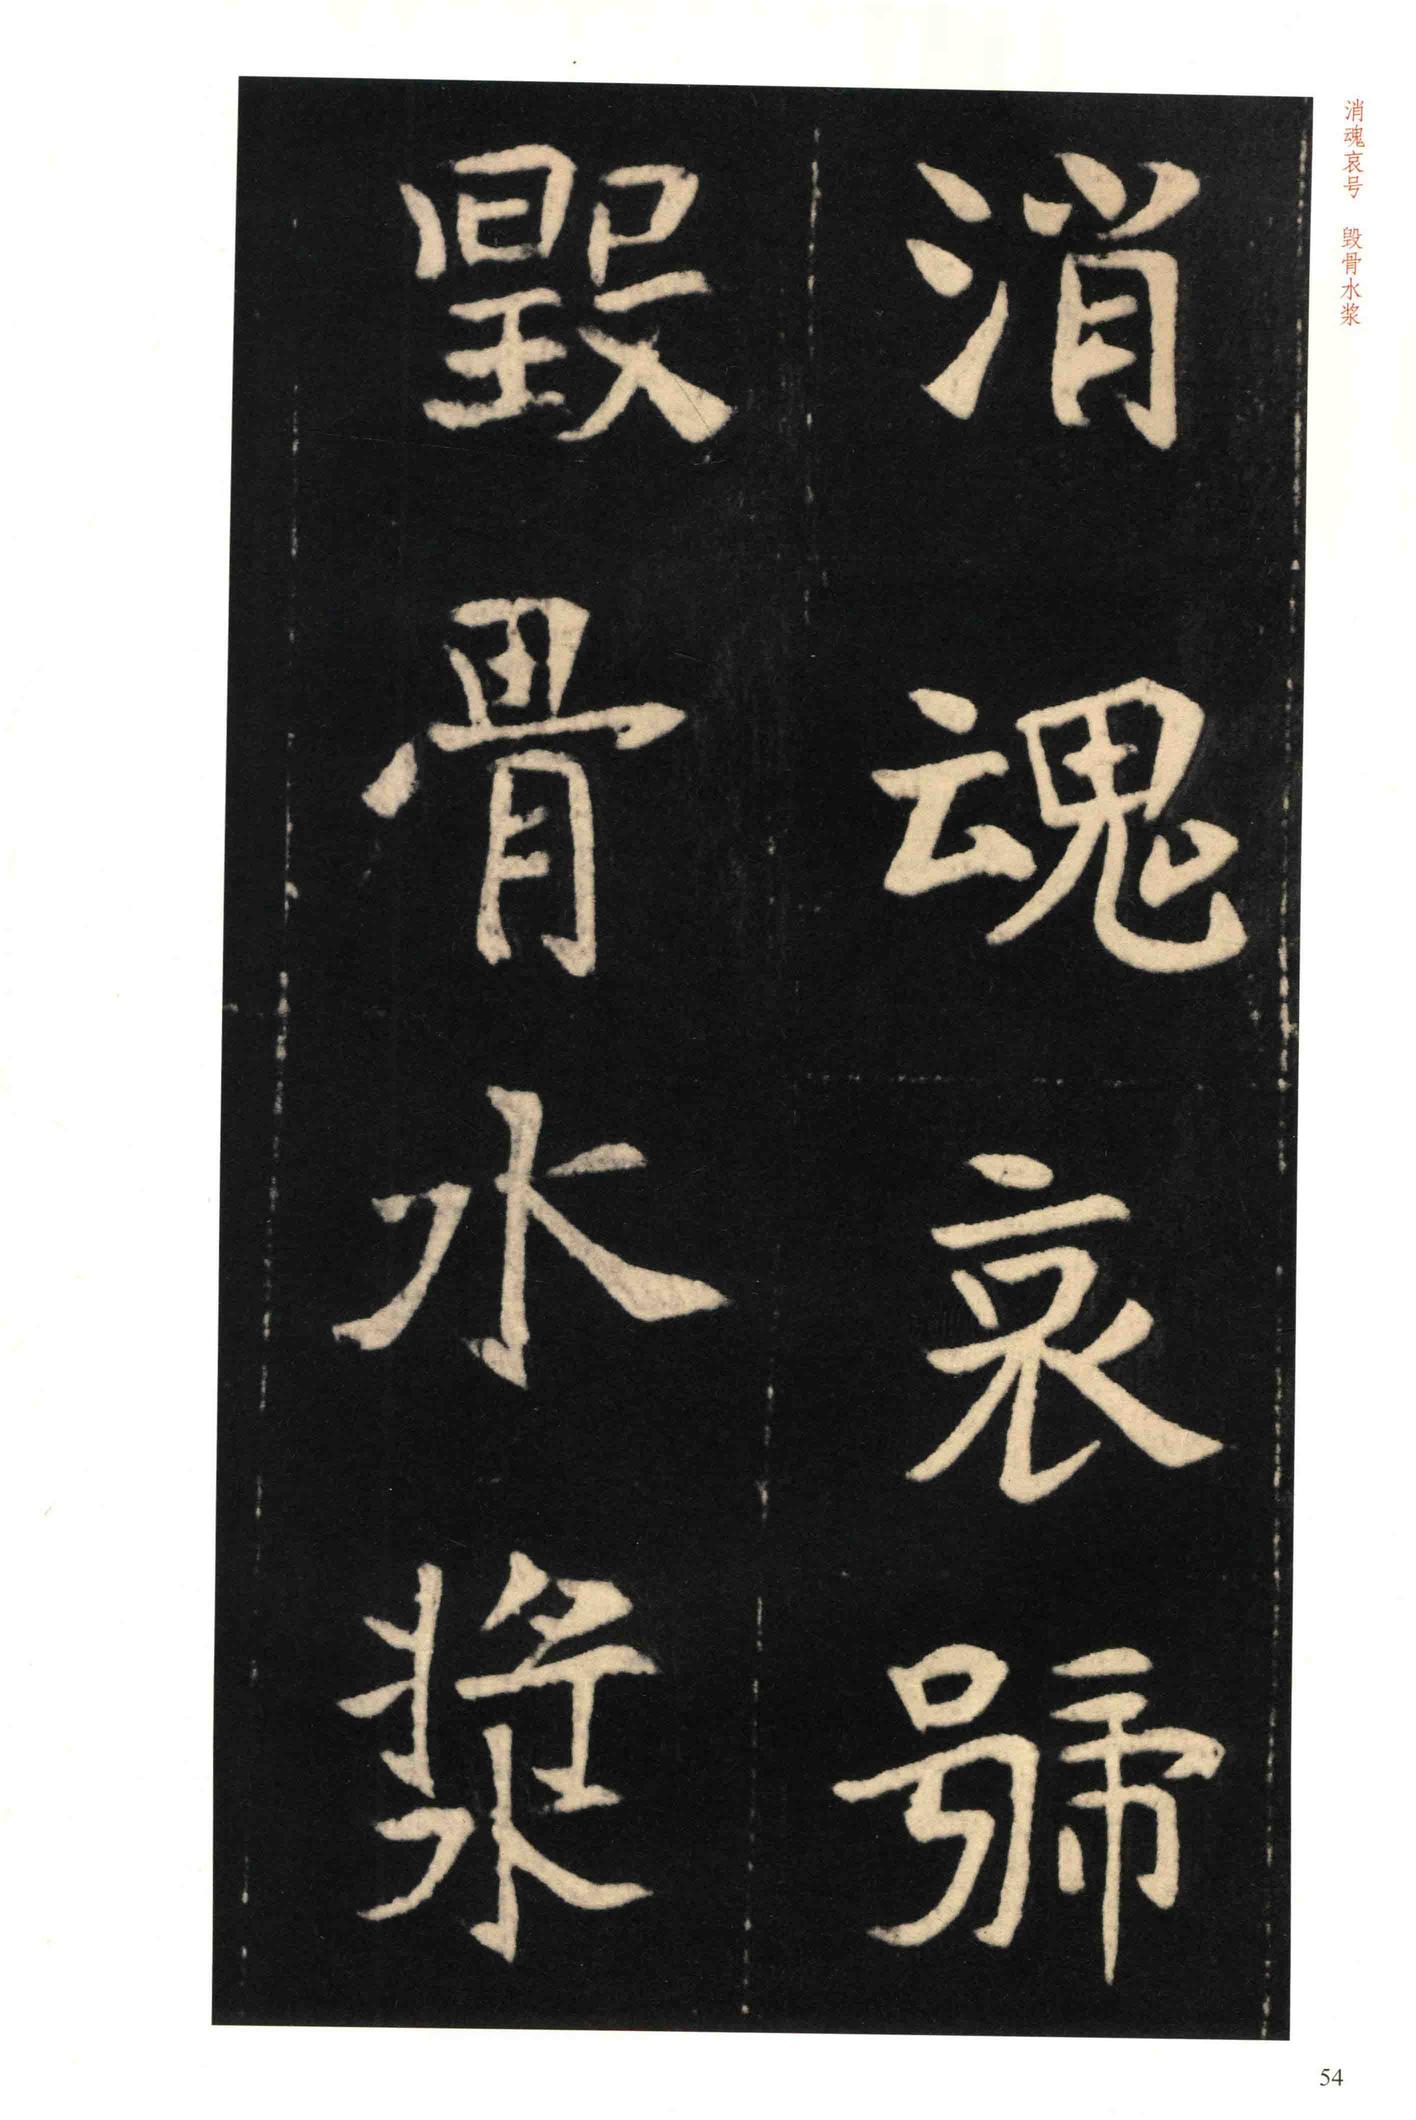 消魂哀號
毀骨水漿
消魂哀号　毁骨水浆
54